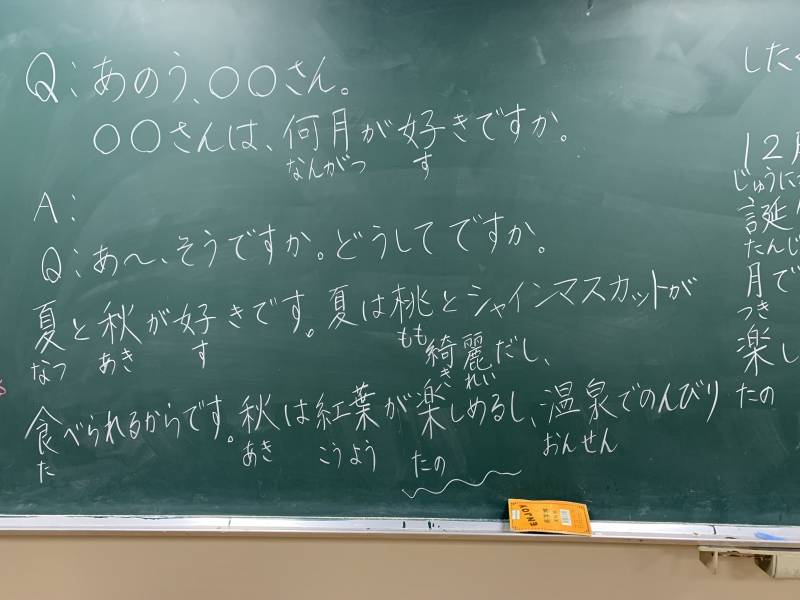 Q:あのう、○○さん。
○○さんは、何月が好きですか。
なんがつ す
A:
Q:あ〜、そうですか。どうしてですか。
夏と秋が好きです。夏は桃とシャインマスカットが
なつ あき す もも
綺麗だし、
きれい
食べられるからです。秋は紅葉が楽しめるし、温泉でのんびり
た あき こうよう たの おんせん
ENJOY
した
12月
じゅうに
誕
たんじ
月で
つき
楽し
たの